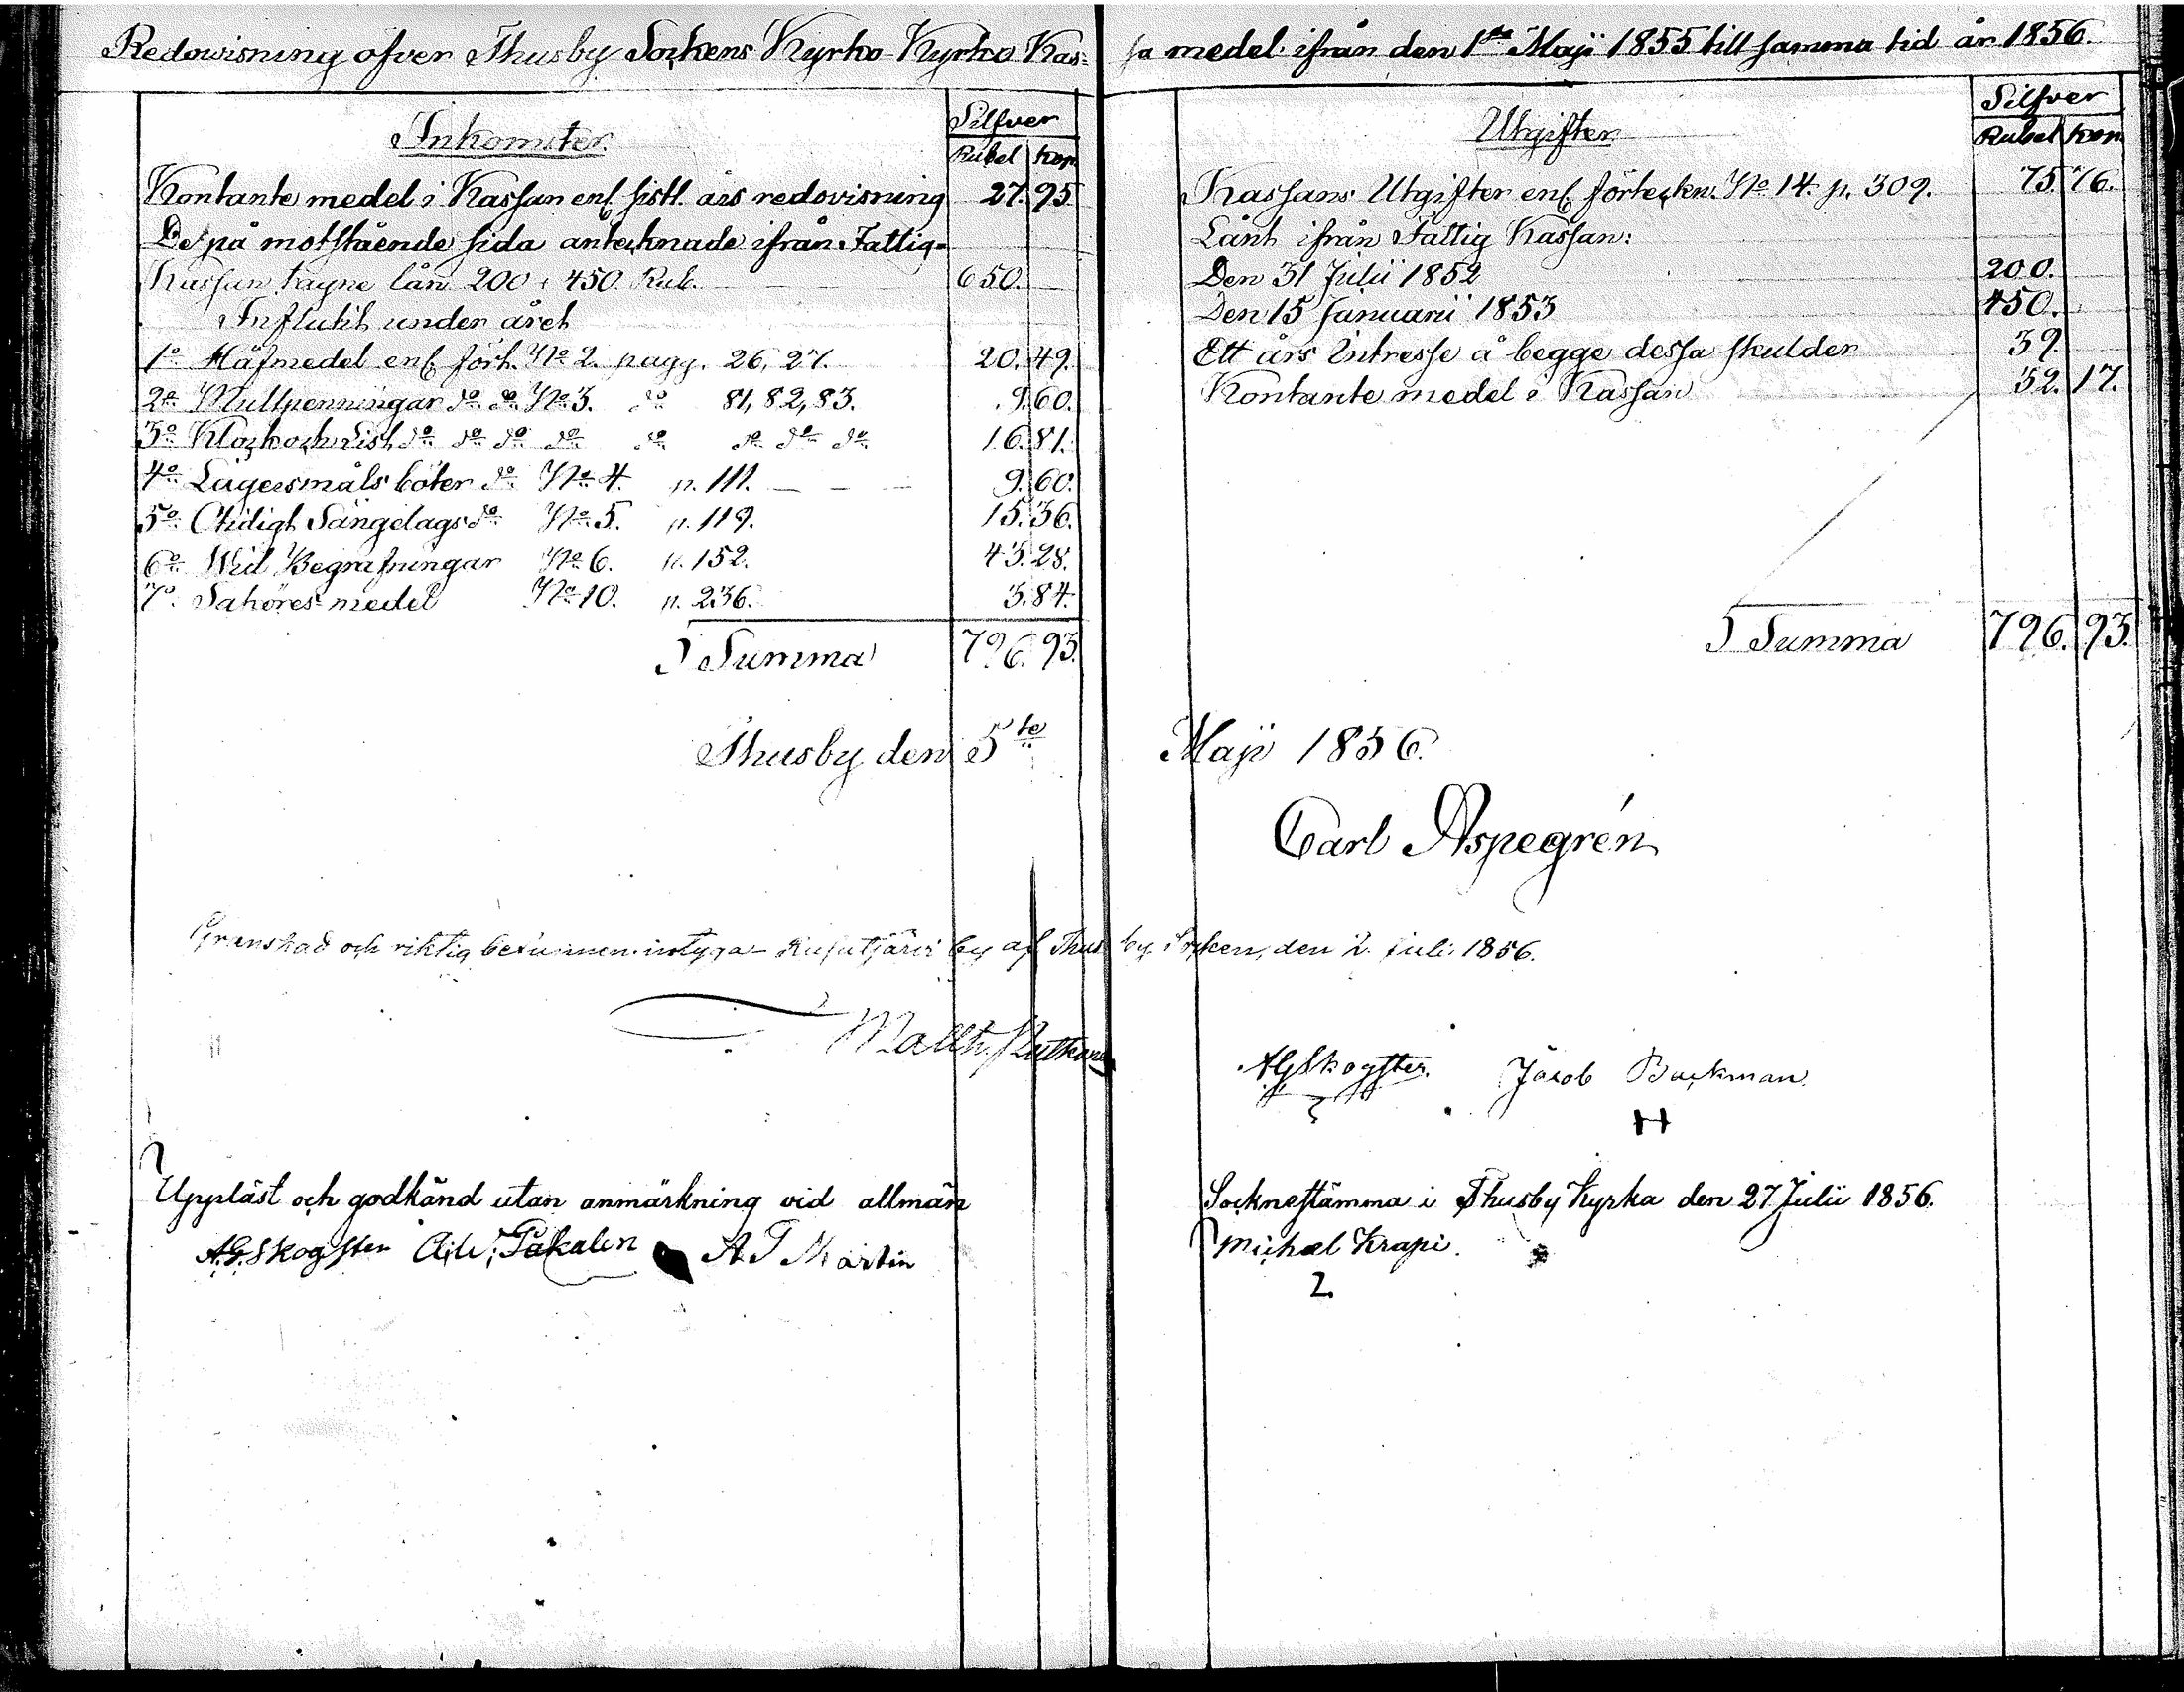 Redovisning öfver Thusby Sockens Kyrko-Kyrko Kas=
sa medel ifrån den 1sta Maji 1855 till samma tid år 1856.
Inkomster.
Silfver
Rubel kop
Kontante medel i Kassan enl. sistl. års redovisning 27. 95
De på motstående sida antecknade ifrån Fattig-
Kassan tagne lån 200 & 450 Rub. 650.
Influtit under året
1o Håfmedel enl. fört. No 2. pagg. 26, 27. 20. 49.
2o Mullpenningar do do No 3. do 81, 82, 83. 9. 60.
3o Klock och Lisl do do do do do do do do 16. 81.
4o Lägersmåls böter do No 4. p. 111. 9. 60.
5o Otidigt Sängelags do No 5. p. 119. 15. 36.
6o Wid Begrafningar No 6. p. 152. 43. 28.
7o Saköres medel No 10. p. 236. 3. 84.
Summa 796. 93.
Thusby den 5te
Utgifter
Silfver
Rubel kop
Kassans Utgifter enl. förteckn. No 14. p. 309. 75. 76.
Lånt ifrån Fattig Kassan:
Den 31 Julii 1852 200.
Den 15 Januarii 1853 450.
Ett års Intresse å begge dessa skulder 39.
Kontante medel i Kassan 32. 17.
Summa 796. 93.
Maji 1856.
Carl Aspegrén
Granskad och riktig befunnen intyga by af Thusby Socken, den 2 Juli 1856.
Matth.
AGSkogster. Jacob Backman
H
Uppläst och godkänd utan anmärkning vid allmän
Sockenstämma i Thusby Kyrka den 27 Julii 1856.
A.G. Skogster Pakalen A J Martin
Michael Krapi.
2.